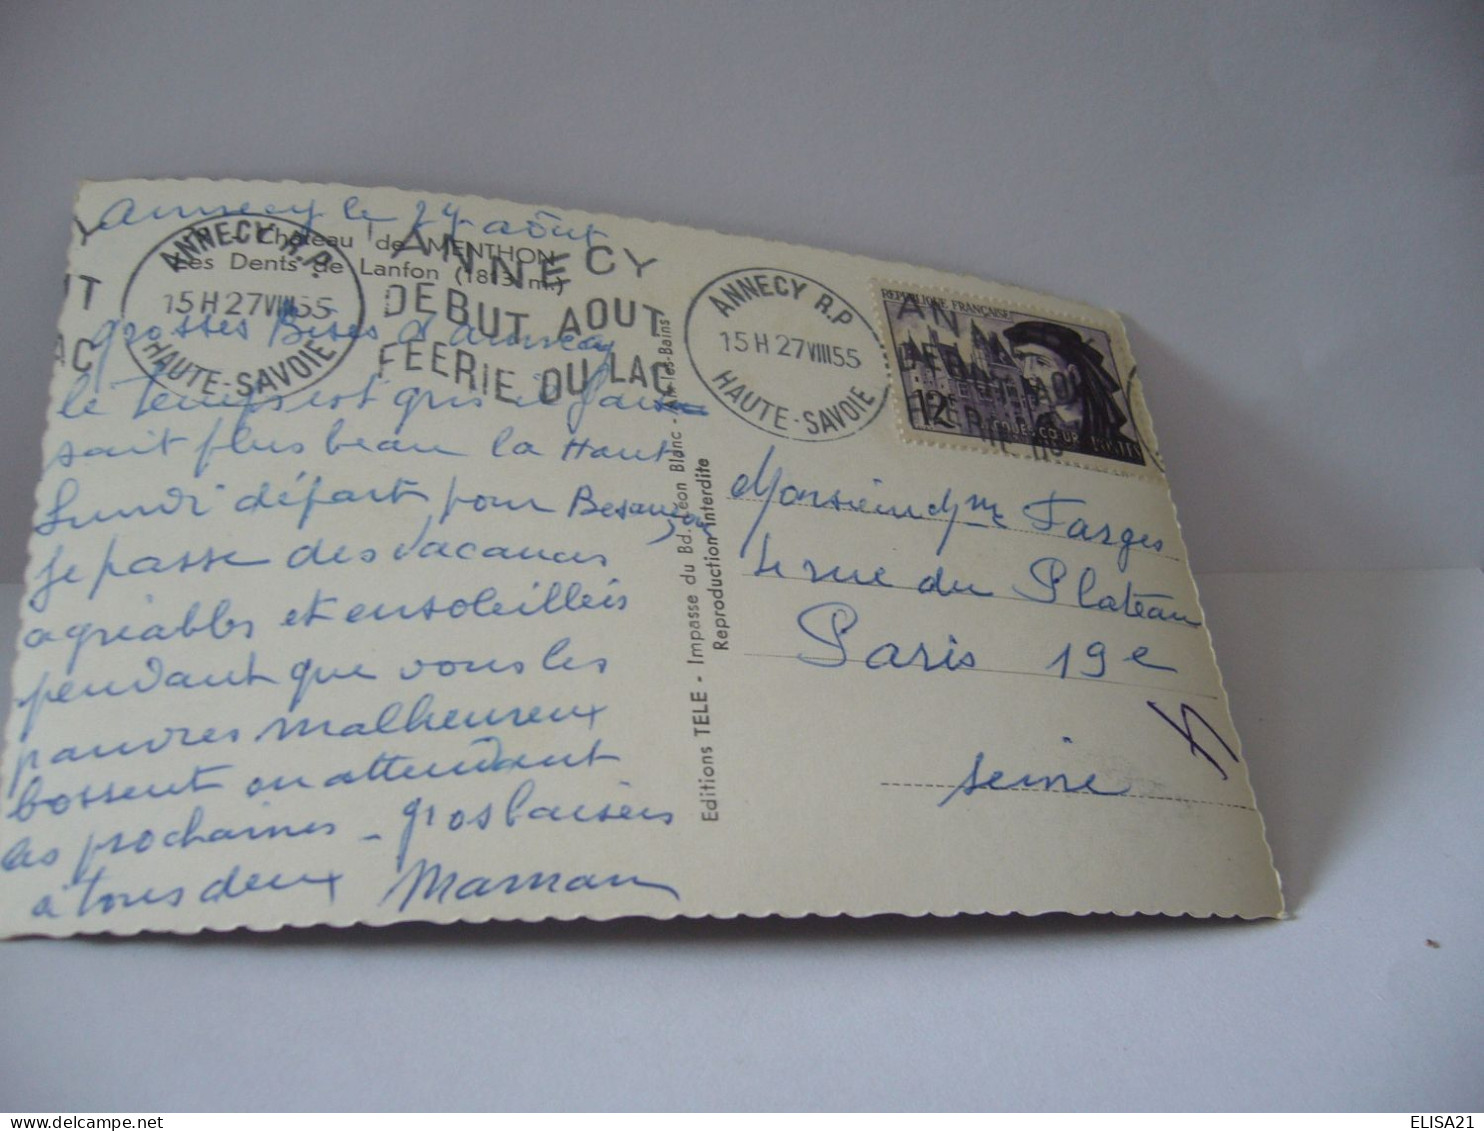 Annecy le 27 août
Château de MENTHON
Les Dents de Lanfon (1813 m.)
ANNECY R.P.
15H27VIII55
HAUTE-SAVOIE
ANNECY
DEBUT AOUT
FEERIE DU LAC
grosses Bises d'annecy
le temps est gris il fai
sait plus beau la Haut
Lundi départ pour Besançon
Je passe des vacances
agréables et ensoleillées
pendant que vous les
pauvres malheureux
bossent en attendant
les prochaines - gros baisers
à tous deux Maman
Editions TELE - Impasse du Bd. Léon Blanc - Aix-les-Bains
Reproduction interdite
ANNECY R.P
15H27VIII55
HAUTE-SAVOIE
REPUBLIQUE FRANÇAISE
12F
Monsieur Mme Farges
4 rue du Plateau
Paris 19e
Seine
ELISA21